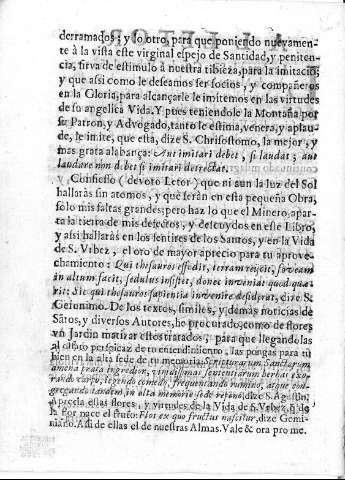 derramados; y lo otro, para que poniendo nuevamen-
te à la vista este virginal espejo de Santidad, y peniten-
cia, sirva de estimulo à nuestra tibieza, para la imitacio;
y que assi como le deseamos ser socios, y compañeros
en la Gloria, para alcançarle le imitemos en las virtudes
de su angelica Vida. Y pues teniendole la Montaña por
su Patron, y Advogado, tanto le estima, venera, y aplau-
de, le imite, que està, dize S. Chrisostomo, la mejor, y
mas grata alabança: Aut imitari debet, si laudat; aut
laudare non debet si imitari detrectat.
Confiesso (devoto Letor) que ni aun la luz del Sol
hallaràs sin atomos, y que seràn en esta pequeña Obra,
solo mis faltas grandes; pero haz lo que el Minero, apar-
ta la tierra de mis defectos, y descuydos en este Libro,
y assi hallaràs en los sentires de los Santos, y en la Vida
de S. Vrbez, el oro de mayor aprecio para tu aprove-
chamiento: Qui thesauros effodit, terram rejicit, foveam
in altum facit, sedulus insistit, donec inveniat quod quæ-
rit: Sic qui thesauros sapientiæ invenire desiderat, dize S.
Geronimo. De los textos, similes, y demas noticias de
Sãtos, y diversos Autores, he procurado, como de flores
vn Jardin matizar estos tratados, para que llegando las
al olfato perspicaz de tu entendimiento, las pongas para tu
bien en la alta sede de tu memoria. Scripturarum Sanctarum
amena prata ingredior, viridissimas sententiarum herbas exo-
rando carpo, legendo comedo, frequentando rumino, atque con-
gregando tandem in alta memoriæ sede repono, dize S. Agustin.
Aprecia estas flores, y virtudes de la Vida de S. Vrbez, q̃ de
la flor nace el fruto: Flos ex quo fructus nascitur, dize Gemi-
niano. Assi de ellas el de nuestras Almas. Vale & ora pro me.